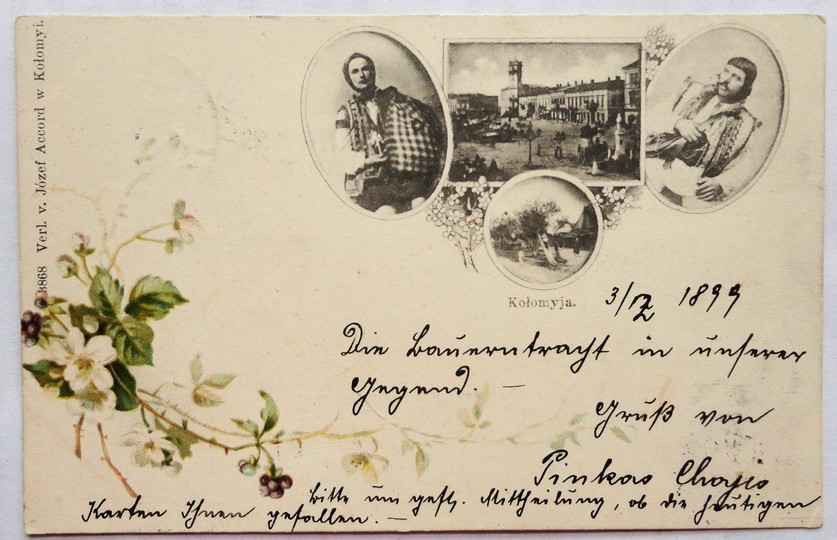 3868 Verl. v. Józef Accord w Kołomyi.
Kołomyja.
1899
Die Bauerntracht in unserer
Gegend. —
Gruß von
Pinkas
Bitte um gefl. Mittheilung, ob die heutigen
Karten Ihnen gefallen. —